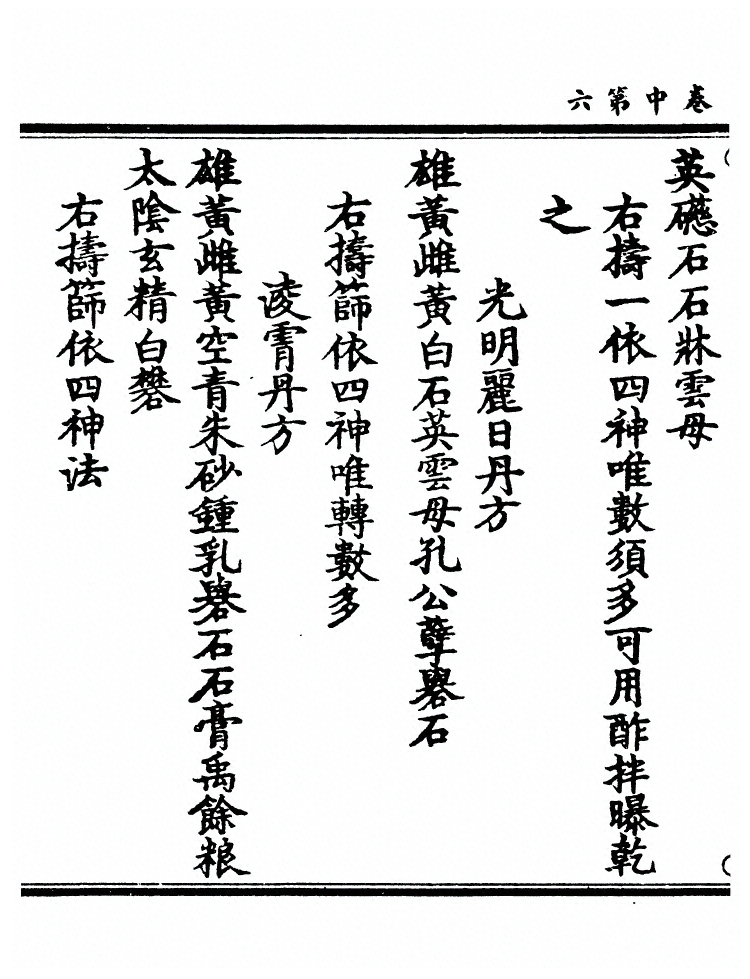 卷中第六
英礠石石牀雲母
右擣一依四神唯數須多可用酢拌曝乾
之
光明麗日丹方
雄黃雌黃白石英雲母孔公孽礜石
右擣篩依四神唯轉數多
淩霄丹方
雄黃雌黃空青朱砂鍾乳礜石石膏禹餘粮
太陰玄精白礬
右擣篩依四神法